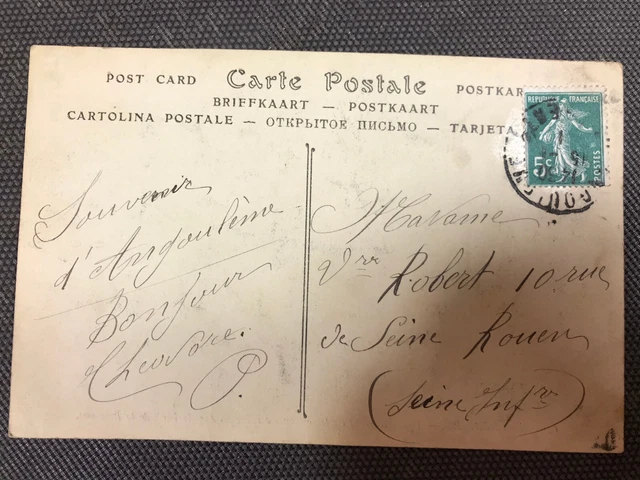 POST CARD Carte Postale POSTKAR
BRIEFKAART — POSTKAART
CARTOLINA POSTALE — ОТКРЫТОЕ ПИСЬМО — TARJETA
REPUBLIQUE FRANÇAISE
5c
POSTES
Souvenir
d'Angoulême
Bonjour
Madame
Vve Robert 10 rue
de Seine Rouen
(Seine Infre)